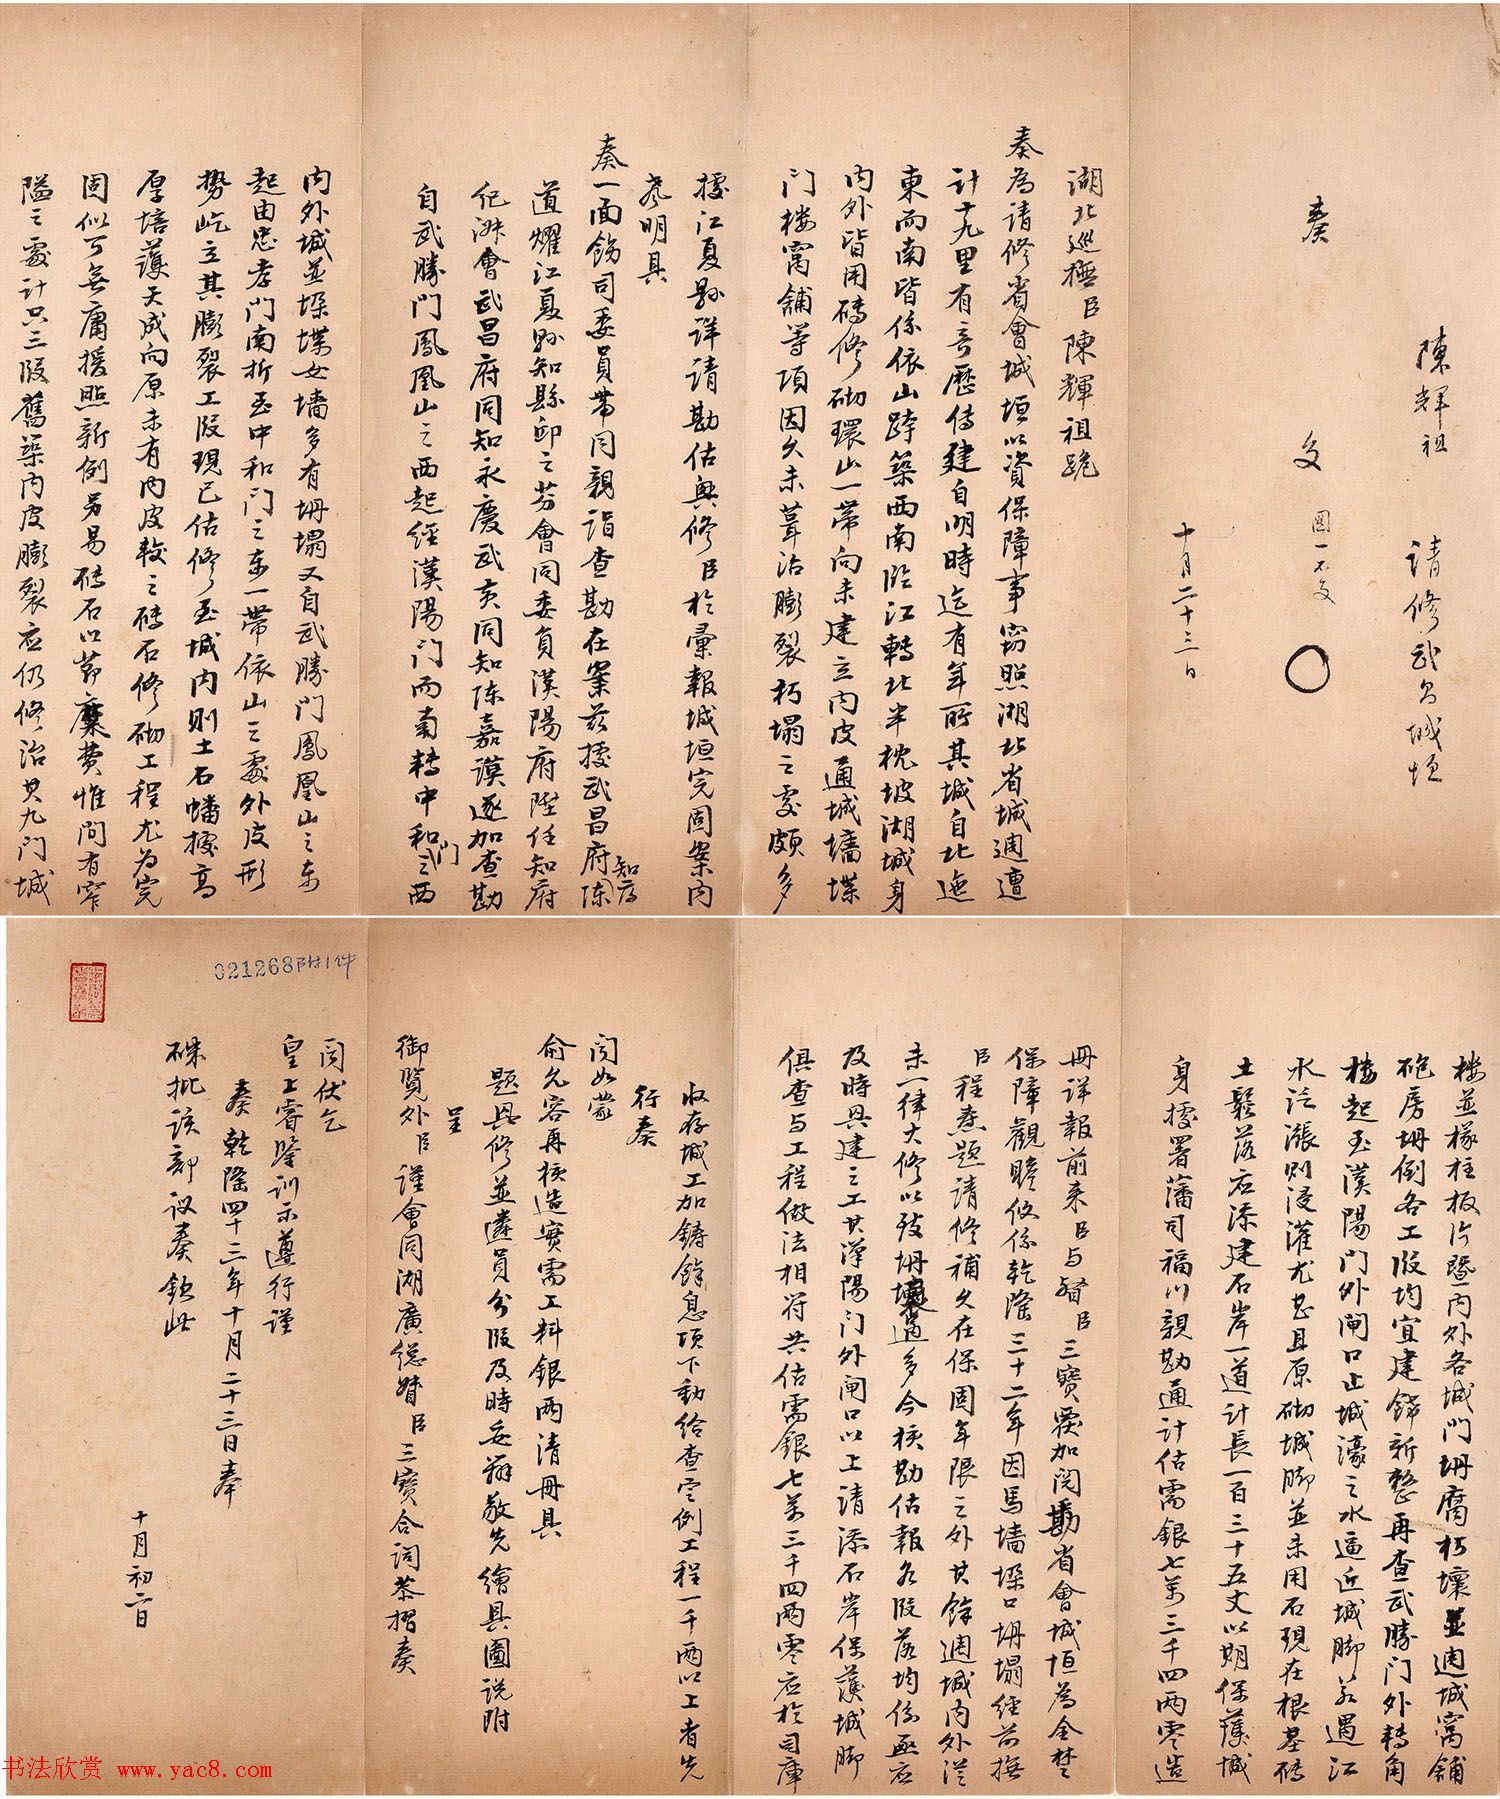 陳輝祖　請修武昌城垣
奏　交　圖一不交　〇
十月二十三日
湖北巡撫臣陳輝祖跪
奏為請修省會城垣以資保障事竊照湖北省城週遭
計十九里有奇歷傳建自明時迄有年所其城自北迤
東而南皆係依山跨築西南臨江轉北半枕坡湖城身
內外皆用磚修砌環山一帶向未建立內皮通城墻堞
门樓窩舖等項因久未葺治膨裂朽塌之處頗多
據江夏縣詳請勘估興修臣於彙報城垣完固案內
聲明具
奏一面飭司委員帶同親詣查勘在案茲據武昌府知府陳
道燿江夏縣知縣邱之芬會同委員漢陽府陞任知府
紀淑會武昌府同知永慶武黃同知陈嘉謨逐加查勘
自武勝門鳳凰山之西起經漢陽门而南轉中和門之西
內外城並垛堞女墻多有坍塌又自武勝門鳳凰山之東
起由忠孝门南折至中和门之東一帶依山之處外皮形
勢屹立其膨裂工段現已估修至城內則土石蟠據高
厚培護天成向原未有內皮較之磚石修砌工程尤為完
固似可無庸援照新例另易磚石以節糜費惟間有窄
隘之處計只三段舊築內皮膨裂应仍修治其九门城
樓並椽柱板片暨內外各城门坍腐朽壞並週城窩舖
砲房坍倒各工段均宜建餙新整再查武勝门外轉角
樓起至漢陽门外閘口止城濠之水逼近城脚若遇江
水泛漲則浸灌尤甚且原砌城脚並未用石現在根基磚
土鬆落应添建石岸一道計長一百三十五丈以期保護城
身據署藩司福川親勘通計估需銀七萬三千四两零造
冊詳報前來臣与督臣三寶覆加閱勘省會城垣為全楚
保障觀瞻攸係乾隆三十二年因馬墻垛口坍塌經前撫
臣程燾題請修補久在保固年限之外其餘週城內外從
未一律大修以致坍壞過多今核勘估報各段落均係亟应
及時興建之工其漢陽门外閘口以上請添石岸保護城脚
俱查与工程做法相符共估需銀七萬三千四两零应於司庫
收存城工加鑄餘息項下動給查定例工程一千两以上者先
行奏
聞如蒙
俞允容再核造實需工料銀两清冊具
題興修並遴員分段及時妥辦敬先繪具圖說附
呈
御覽外臣謹會同湖廣總督臣三寶合詞恭摺奏
聞伏乞
皇上睿鑒訓示遵行謹
奏乾隆四十三年十月二十三日奉
硃批該部议奏欽此
十月初二日
021268附1件
书法欣赏 www.yac8.com